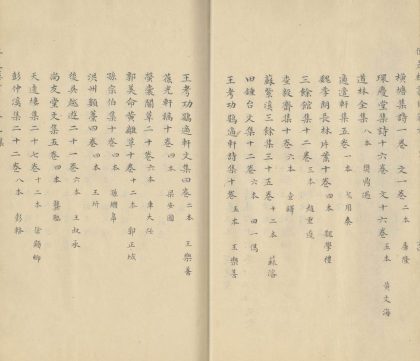 橫塘集詩一卷 文一卷二本 唐隆
環慶堂集詩十六卷 文十六卷五本 黃文海
道林全集八本 樊鼎遇
適適軒集五卷一本 戈用泰
魏季朗長林片葉十卷四本 魏學禮
三餘館集十二卷三本 趙重道
婁毅齋集十卷六本
蘇紫溪三餘集三十五卷十二本 蘇濬
田鍾台文集十二卷六本 田一儁
王考功鷃適軒詩集十卷五本 王樂善
王考功鷃適軒文集四卷二本 王樂善
葆光軒稿十卷四本 梁安國
螢囊閣草二十卷六本 車大任
郭美命黃離草十卷十二本 郭正域
孫宗伯集十卷 孫繼皋
洪州類纂四卷四本 王圻
後吳越遊二十一卷六本 王叔承
尚友堂文集五卷四本 龔勉
天遠樓集二十七卷十二本 徐顯卿
彭仲溪集二十二卷八本 彭輅